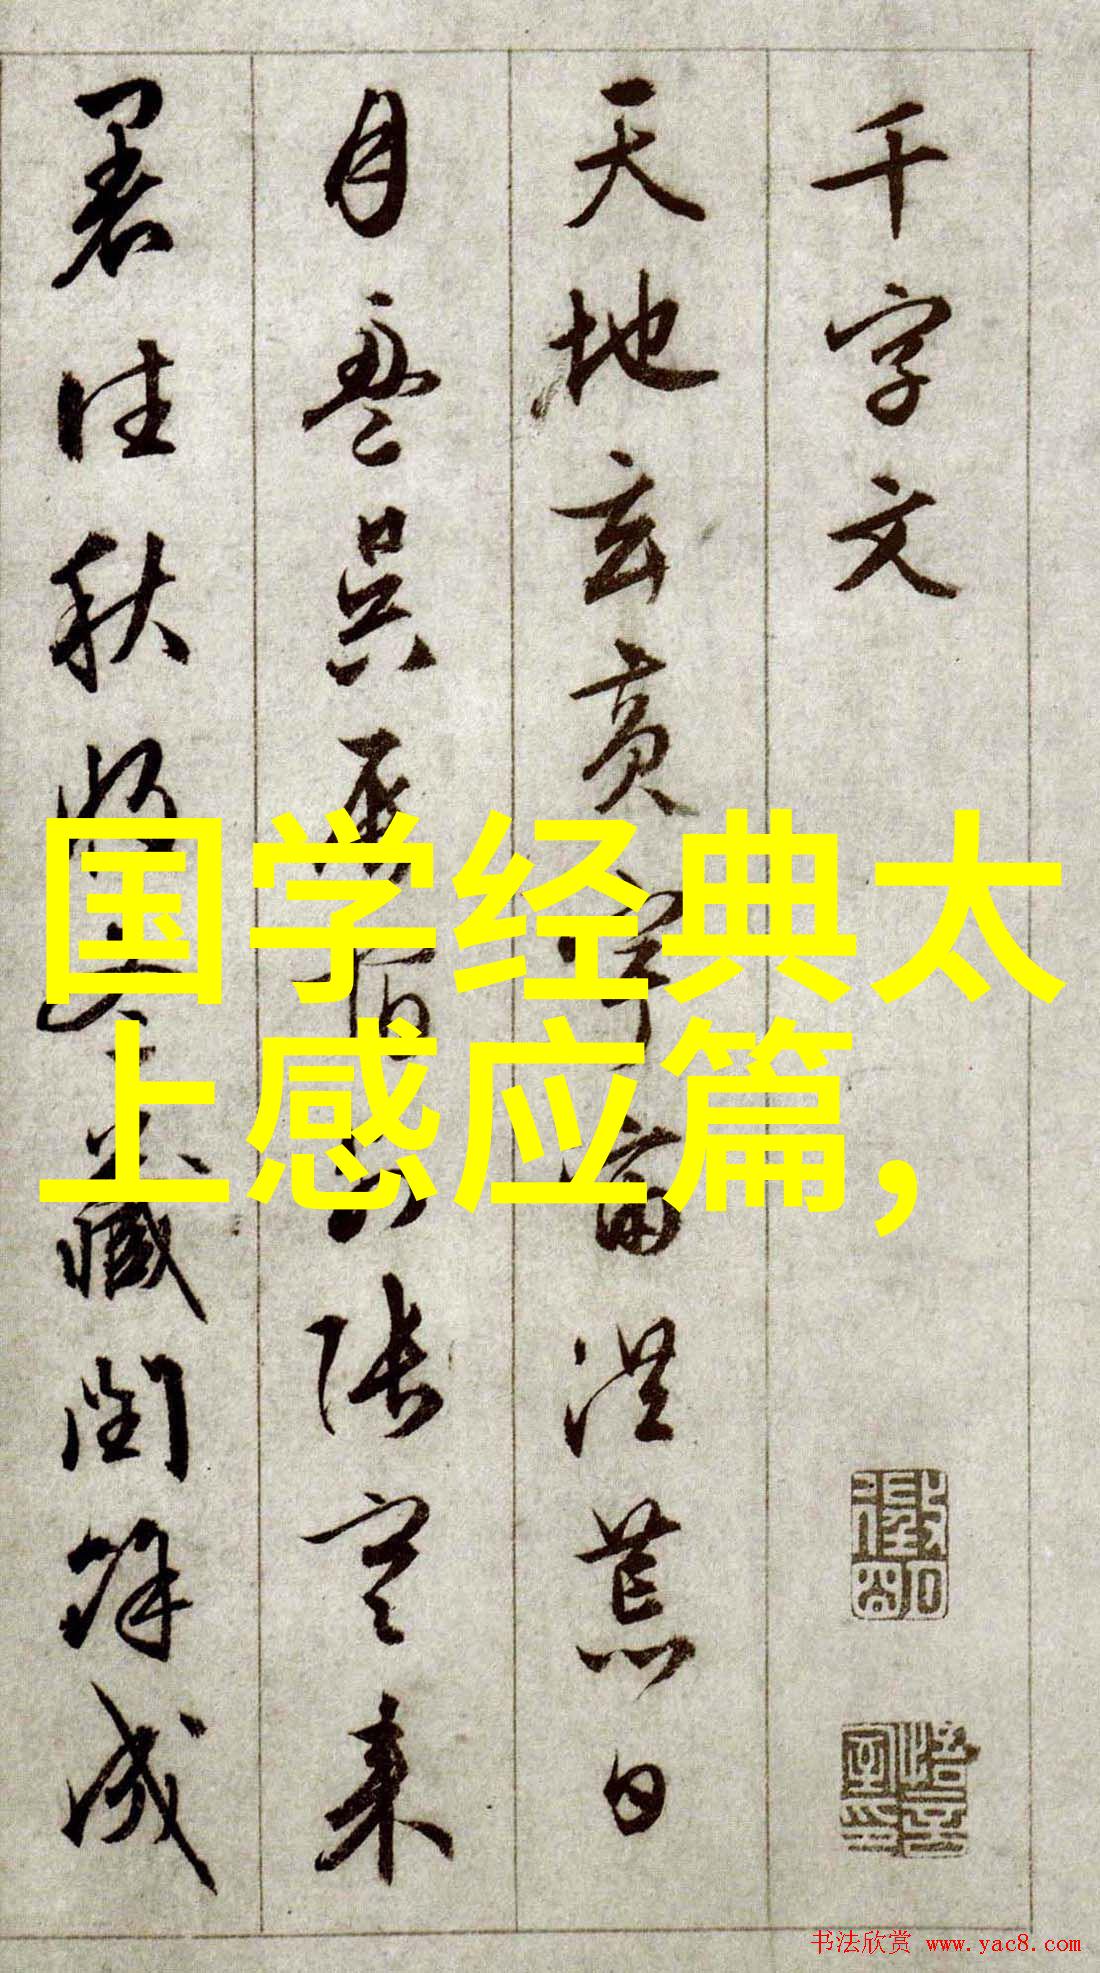 千字文
天地玄黄宇宙洪荒日
月盈昃辰宿列張寒来
暑往秋收冬藏閏餘成
国学经典太
上感应篇，
书法欣赏 www.yac8.com